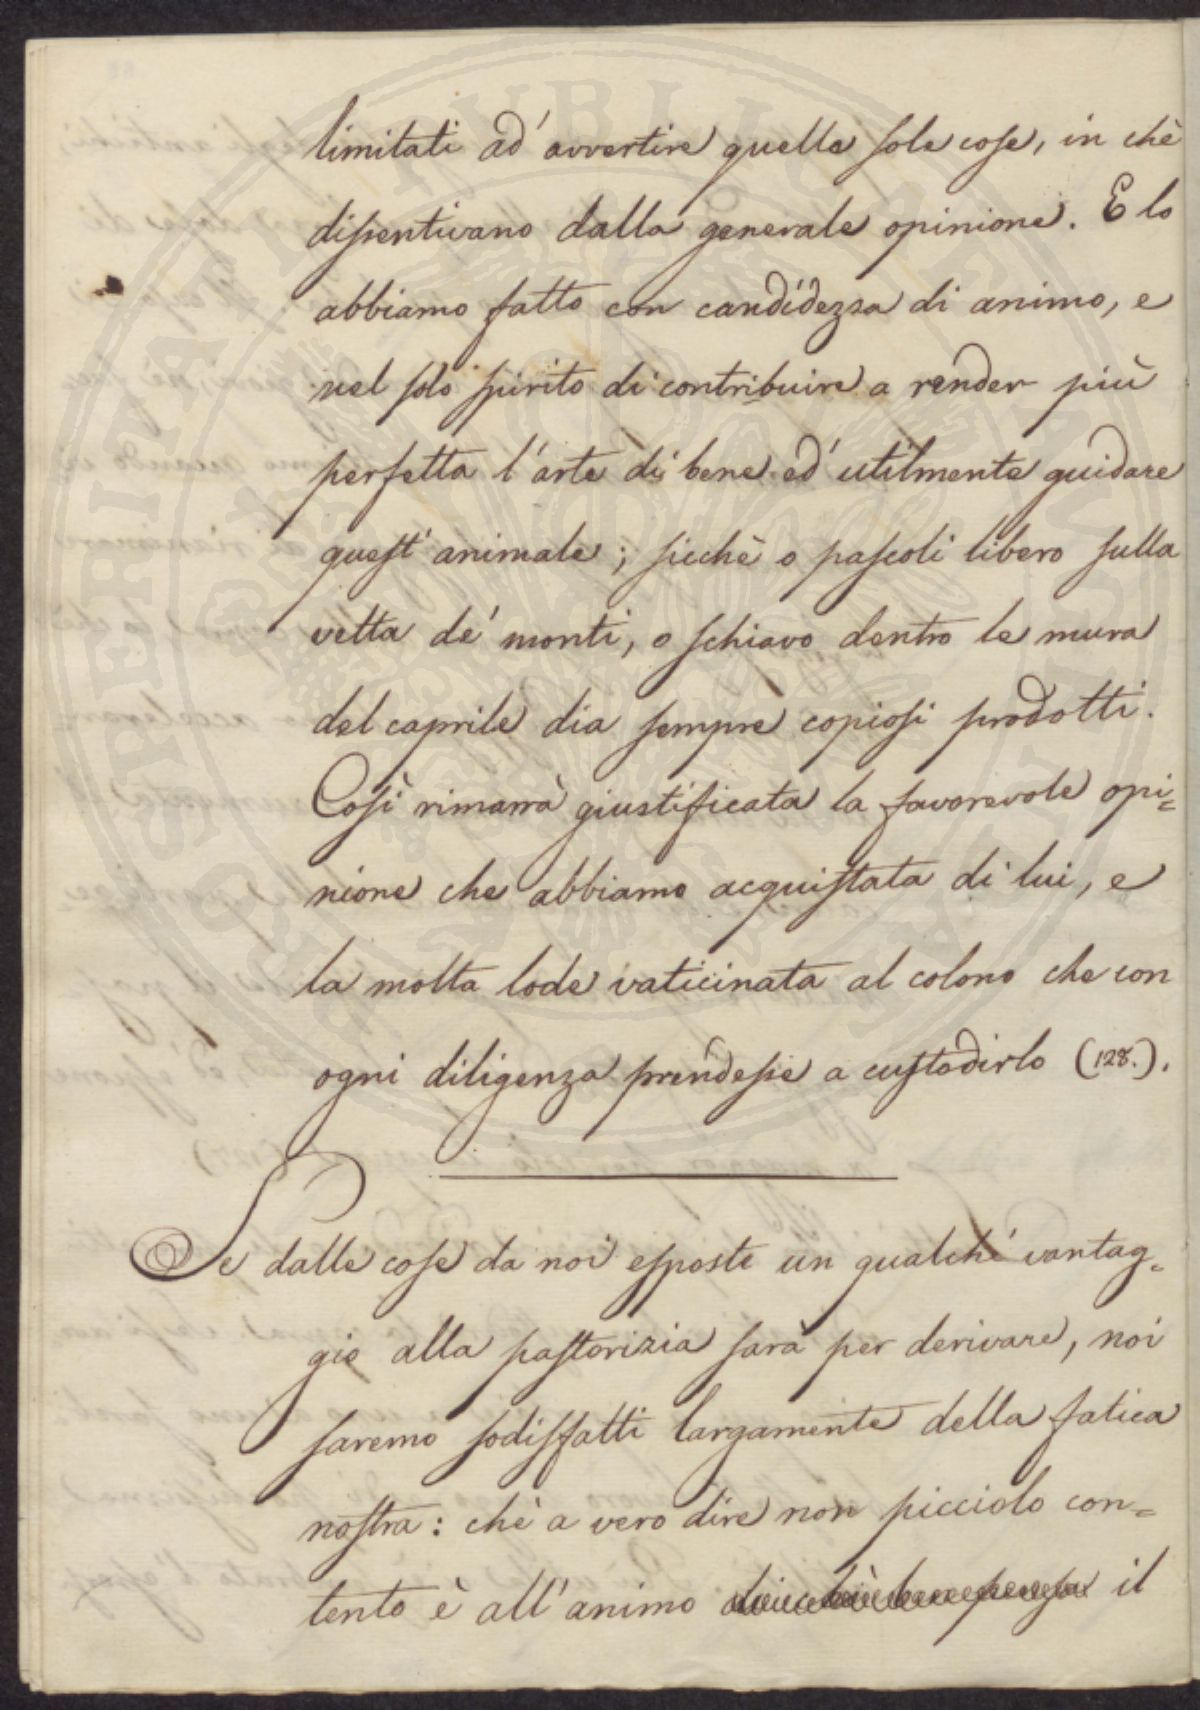 limitati ad' avvertire quelle sole cose, in chè
dissentivano dalla generale opinione. E lo
abbiamo fatto con candidezza di animo, e
nel solo spirito di contribuire a render più
perfetta l'arte di bene ed' utilmente guidare
quest' animale; sicchè o pascoli libero sulla
vetta de' monti, o schiavo dentro le mura
del caprile dia sempre copiosi prodotti.
Così rimarrà giustificata la favorevole opi=
nione che abbiamo acquistata di lui, e
la molta lode vaticinata al colono che con
ogni diligenza prendesse a custodirlo (128.).
Se dalle cose da noi esposte un qualchè vantag=
gio alla pastorizia sarà per derivare, noi
saremo sodisfatti largamente della fatica
nostra: chè a vero dire non picciolo con=
tento è all'animo il